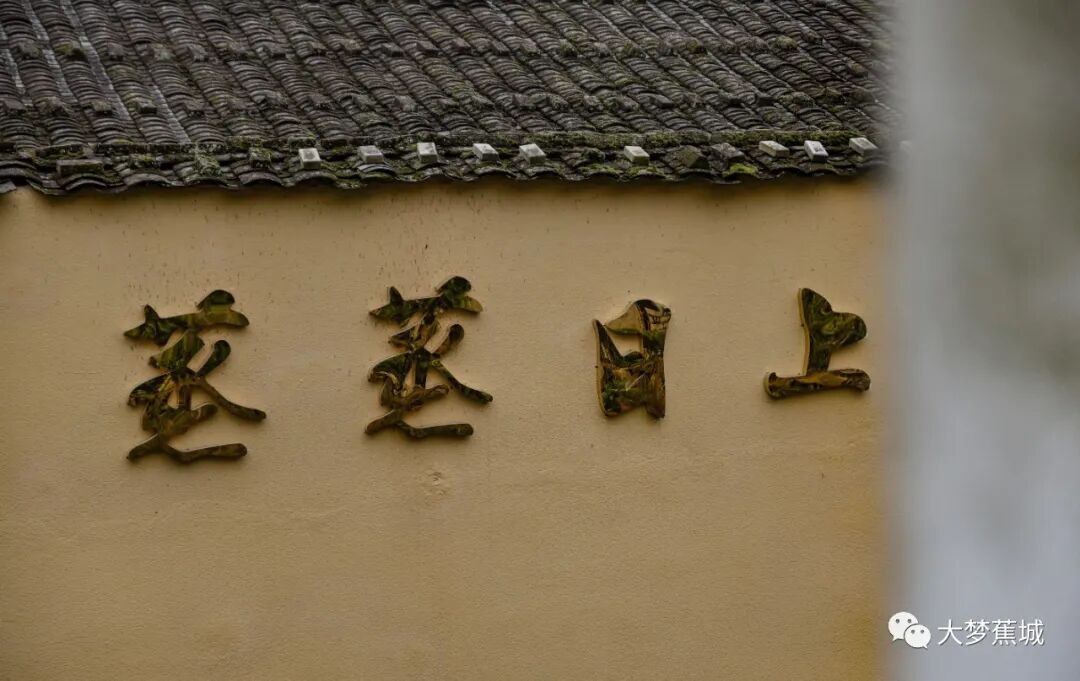 蒸蒸日上
大梦蕉城